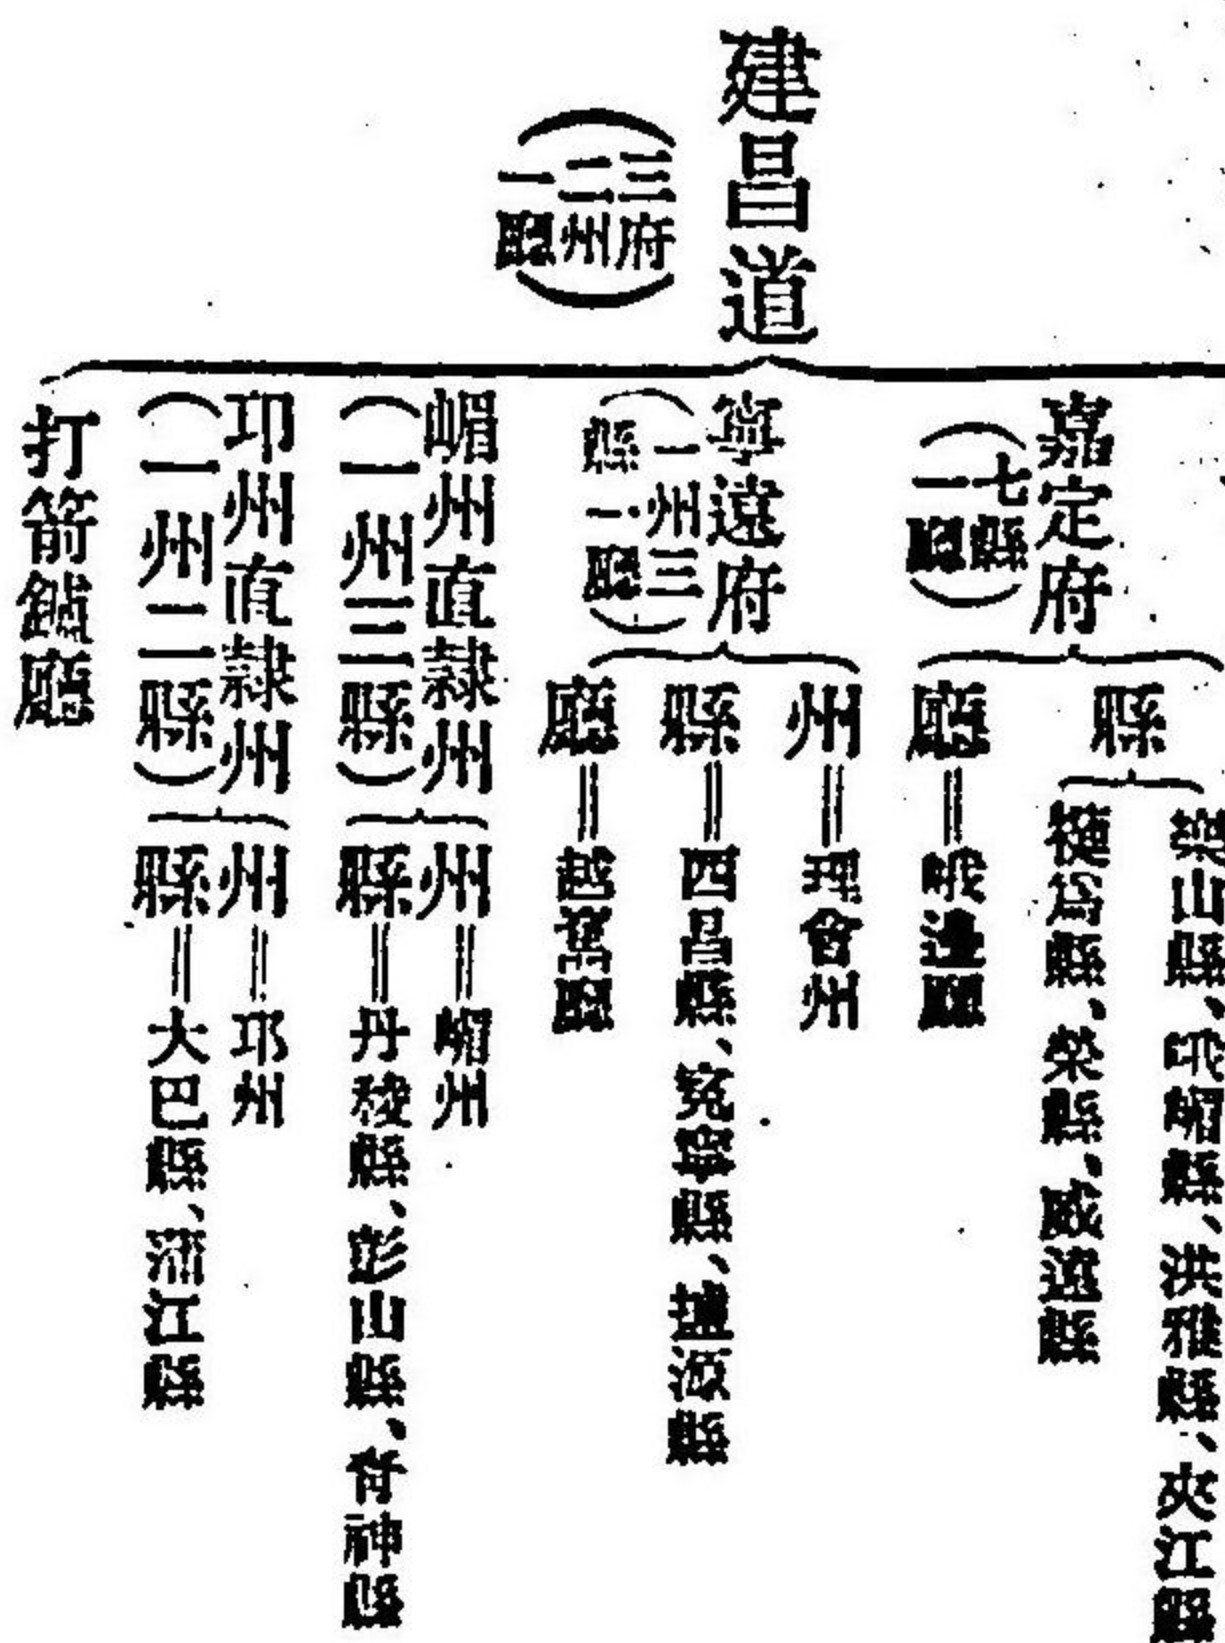 建昌道
(三府
二州
一廳)
嘉定府
(七縣
一廳)
縣
樂山縣、峨嵋縣、洪雅縣、夾江縣
犍爲縣、榮縣、威遠縣
廳
峨邊廳
寧遠府
(一州三
縣一廳)
州
理會州
縣
四昌縣、冕寧縣、鹽源縣
廳
越嶲廳
嵋州直隸州
(一州三縣)
州
嵋州
縣
丹稜縣、彭山縣、靑神縣
卭州直隸州
(一州二縣)
州
邛州
縣
大巴縣、蒲江縣
打箭鑪廳